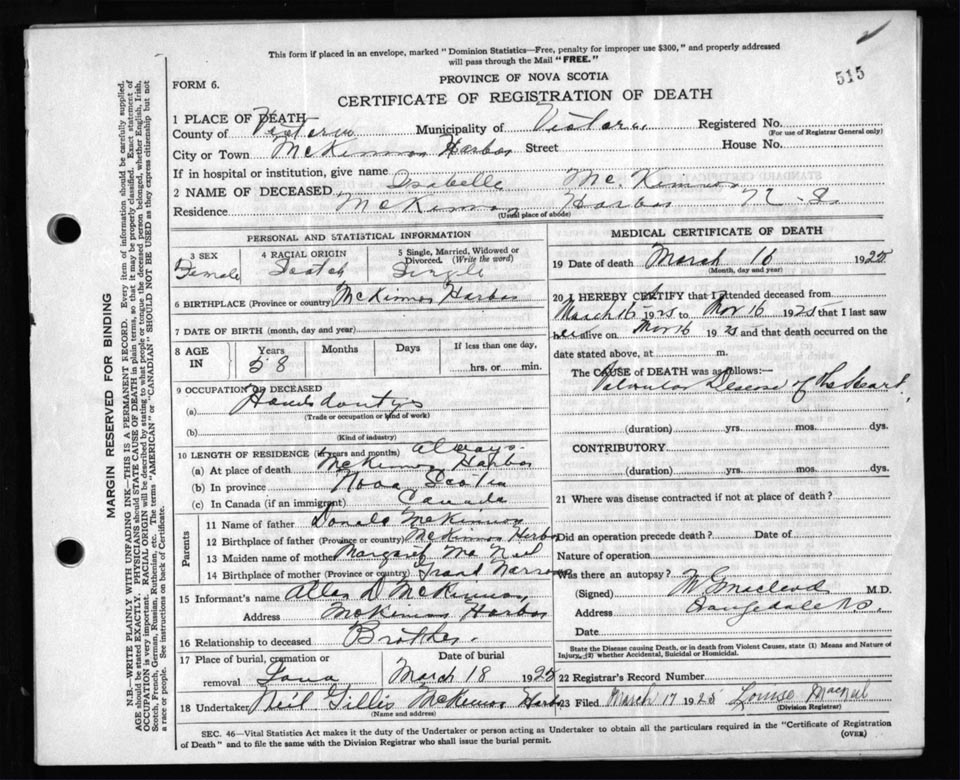 This form if placed in an envelope, marked "Dominion Statistics—Free, penalty for improper use $300," and properly addressed
will pass through the Mail "FREE."
515
FORM 6.
PROVINCE OF NOVA SCOTIA
CERTIFICATE OF REGISTRATION OF DEATH
1 PLACE OF DEATH
County of Victoria Municipality of Victoria Registered No.
(For use of Registrar General only)
City or Town McKinnos Harbor Street House No.
If in hospital or institution, give name
2 NAME OF DECEASED Isabelle McKinnon
Residence McKinnon Harbor N. S.
(Usual place of abode)
PERSONAL AND STATISTICAL INFORMATION
3 SEX
Female
4 RACIAL ORIGIN
Scotch
5 Single, Married, Widowed or
Divorced. (Write the word)
Single
6 BIRTHPLACE (Province or country) McKinnos Harbor
7 DATE OF BIRTH (month, day and year)
8 AGE IN
Years Months Days If less than one day,
58 hrs. or min.
9 OCCUPATION OF DECEASED
(a)
(Trade or occupation or kind of work)
(b)
(Kind of industry)
10 LENGTH OF RESIDENCE (in years and months) always
(a) At place of death McKinnos Harbor
(b) In province Nova Scotia
(c) In Canada (if an immigrant) Canada
Parents
11 Name of father Donald McKinnon
12 Birthplace of father (Province or country) McKinnos Harbor
13 Maiden name of mother Margaret McNeil
14 Birthplace of mother (Province or country) Grand Narrows
15 Informant's name Allan D McKinnon
Address McKinnos Harbor
16 Relationship to deceased Brother.
17 Place of burial, cremation or Date of burial
removal Iona March 18 1925
18 Undertaker Neil Gillis McKinnos Harbor
(Name and address)
MEDICAL CERTIFICATE OF DEATH
19 Date of death March 16 1925
(Month, day and year)
20 I HEREBY CERTIFY that I attended deceased from
March 16 1925 to Mor 16 1925 that I last saw
her alive on Mor 16 1925 and that death occurred on the
date stated above, at m.
The CAUSE OF DEATH was as follows:—
Valvular Disease of the Heart
(duration) yrs. mos. dys.
CONTRIBUTORY
(duration) yrs. mos. dys.
21 Where was disease contracted if not at place of death?
Did an operation precede death? Date of
Nature of operation
Was there an autopsy?
(Signed) M.D.
Address
Date
State the Disease causing Death, or in death from Violent Causes, state (1) Means and Nature of
Injury, (2) whether Accidental, Suicidal or Homicidal.
22 Registrar's Record Number
23 Filed March 17 1925 Louise MacNeil
(Division Registrar)
SEC. 46—Vital Statistics Act makes it the duty of the Undertaker or person acting as Undertaker to obtain all the particulars required in the "Certificate of Registration
of Death" and to file the same with the Division Registrar who shall issue the burial permit.
(OVER)
MARGIN RESERVED FOR BINDING
N.B.—WRITE PLAINLY WITH UNFADING INK—THIS IS A PERMANENT RECORD. Every item of information should be carefully supplied.
AGE should be stated EXACTLY. PHYSICIANS should STATE CAUSE OF DEATH in plain terms, so that it may be properly classified. Exact statement of
OCCUPATION is very important. RACIAL ORIGIN will be described by stating to what people or tongue the deceased person belonged, whether English, Irish,
Scotch, French, German, Russian, Ruthenian, etc. The terms "AMERICAN" or "CANADIAN" SHOULD NOT BE USED as they express citizenship but not
a race or people. See instructions on back of Certificate.